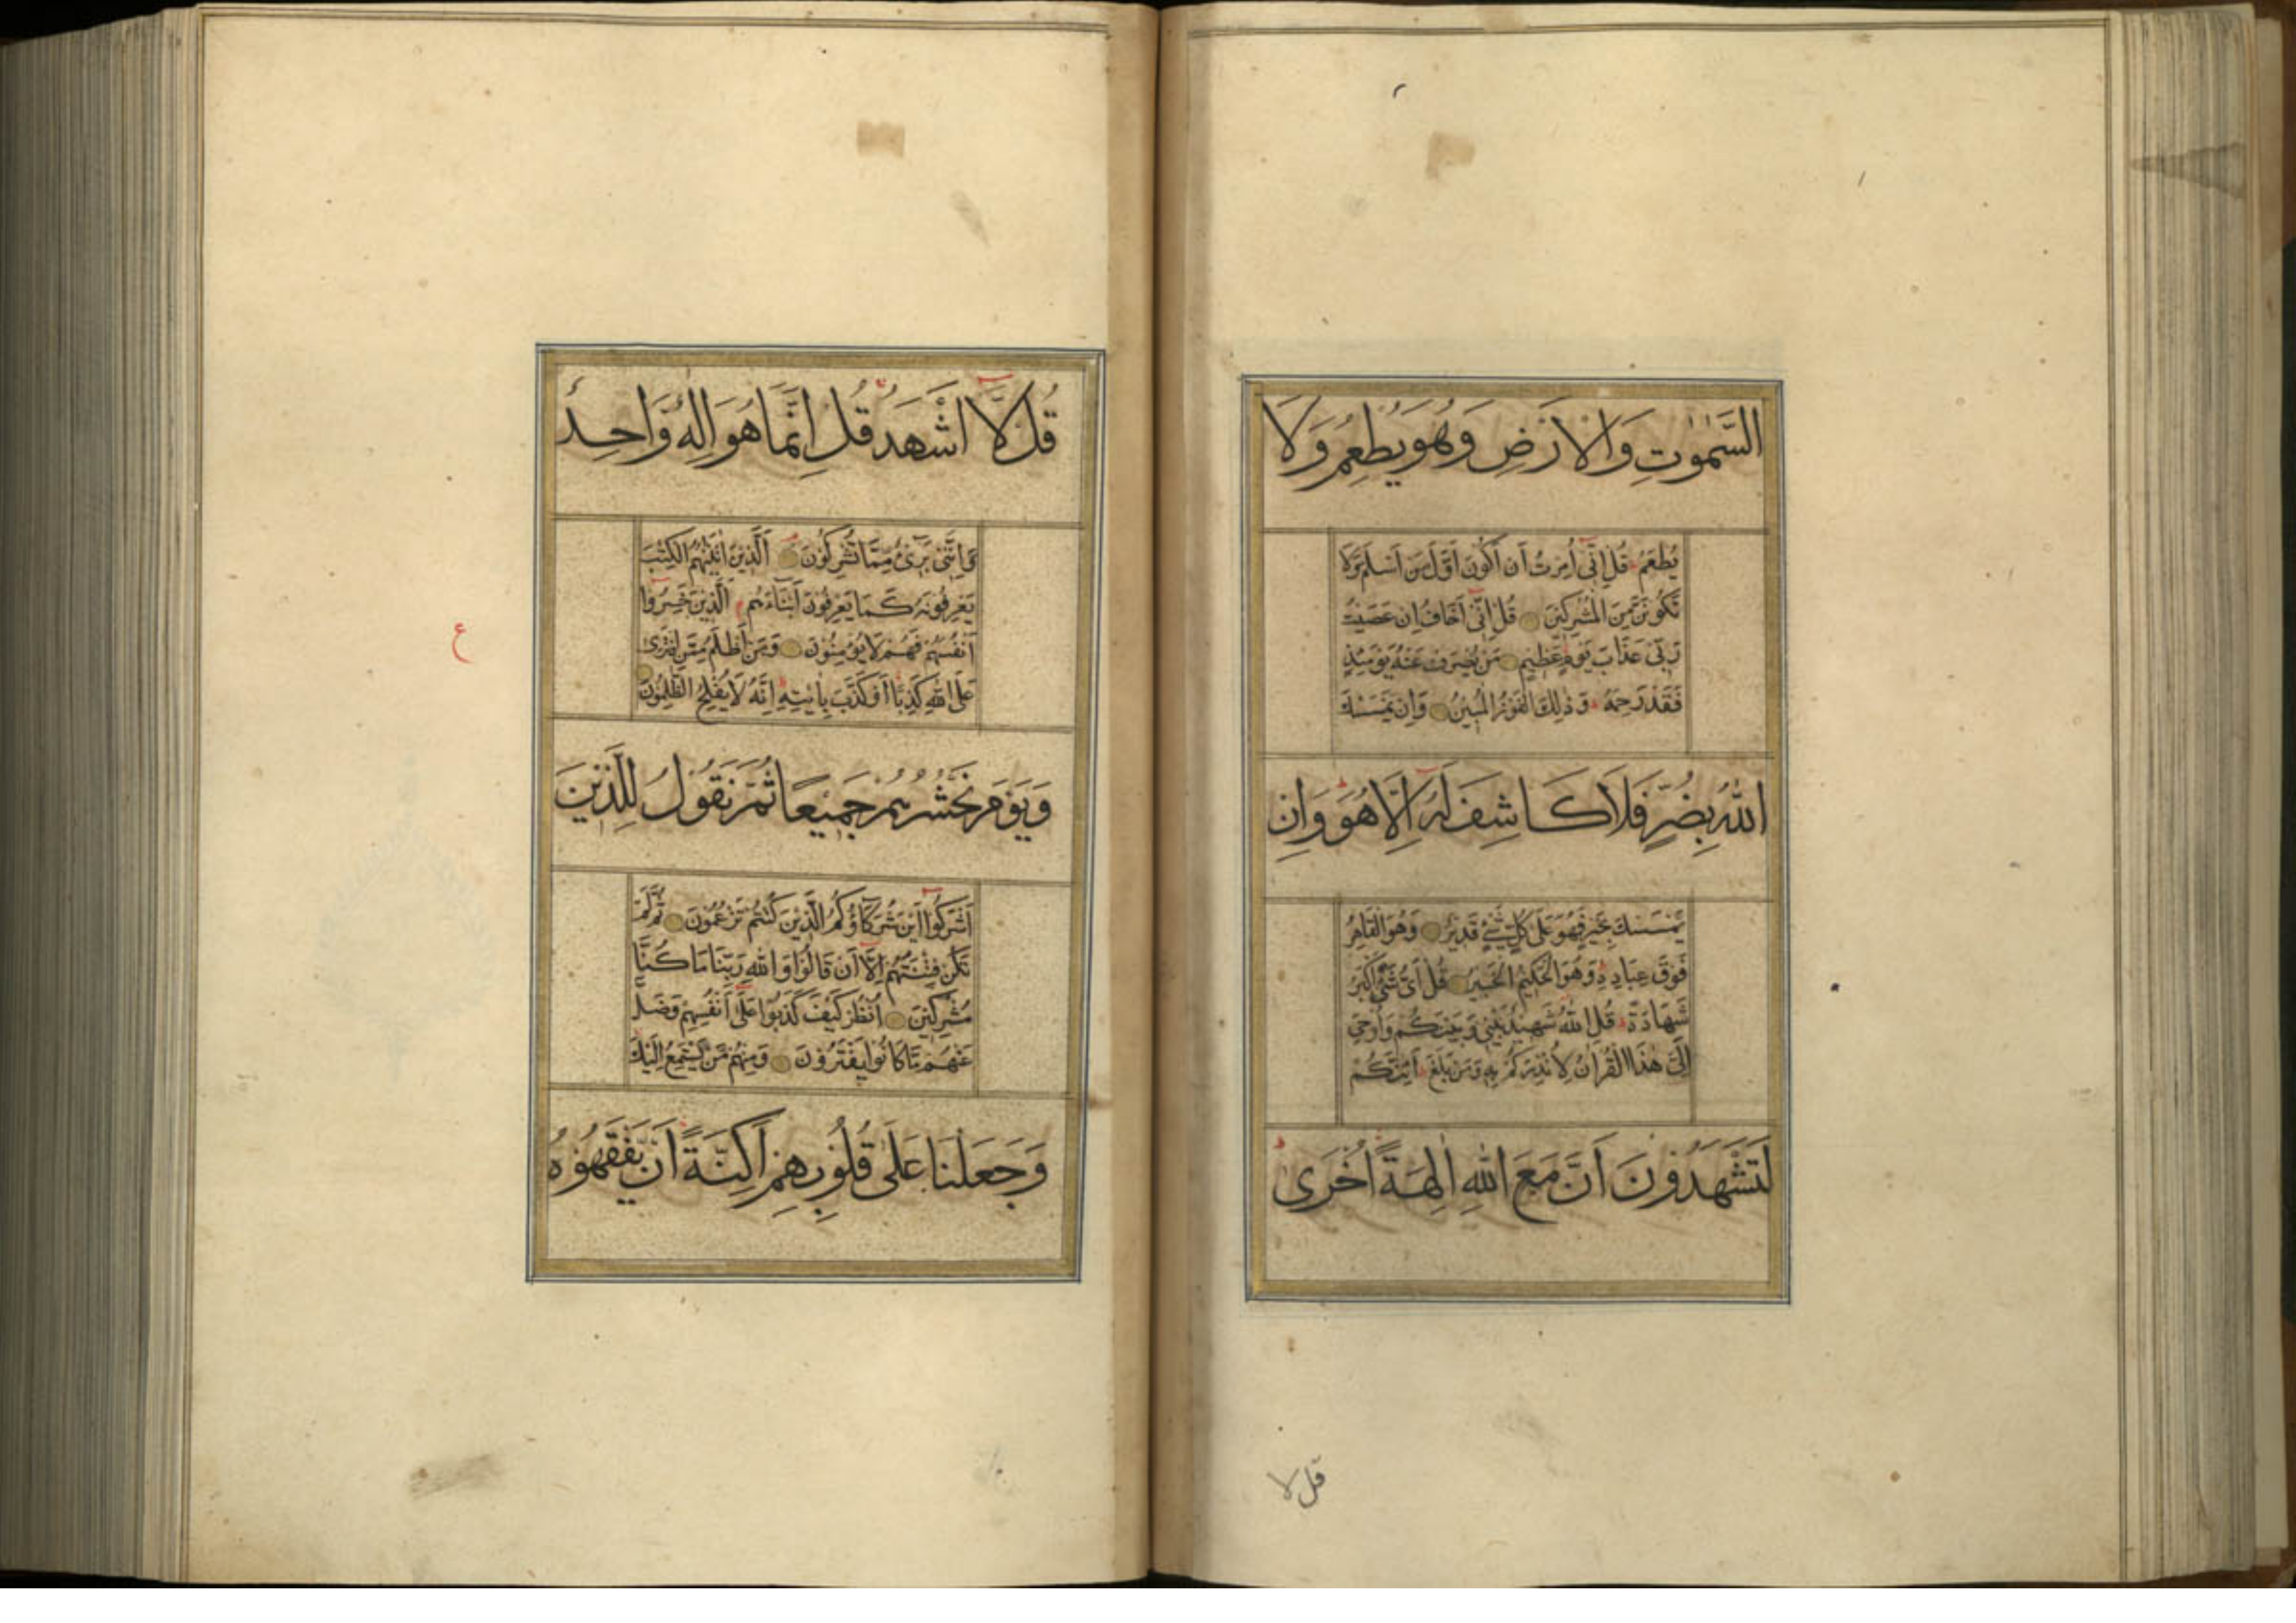 السَّمٰوٰتِ وَالْاَرْضِ وَهُوَ يُطْعِمُ وَلَا
يُطْعَمُ قُلْ اِنِّىٓ اُمِرْتُ اَنْ اَكُوْنَ اَوَّلَ مَنْ اَسْلَمَ وَلَا
تَكُوْنَنَّ مِنَ الْمُشْرِكِيْنَ قُلْ اِنِّىٓ اَخَافُ اِنْ عَصَيْتُ
رَبِّىْ عَذَابَ يَوْمٍ عَظِيْمٍ مَنْ يُصْرَفْ عَنْهُ يَوْمَئِذٍ
فَقَدْ رَحِمَهُ وَذٰلِكَ الْفَوْزُ الْمُبِيْنُ وَاِنْ يَمْسَسْكَ
اللّٰهُ بِضُرٍّ فَلَا كَاشِفَ لَهٗٓ اِلَّا هُوَ وَاِنْ
يَمْسَسْكَ بِخَيْرٍ فَهُوَ عَلٰى كُلِّ شَىْءٍ قَدِيْرٌ وَهُوَ الْقَاهِرُ
فَوْقَ عِبَادِهٖ وَهُوَ الْحَكِيْمُ الْخَبِيْرُ قُلْ اَىُّ شَىْءٍ اَكْبَرُ
شَهَادَةً قُلِ اللّٰهُ شَهِيْدٌ بَيْنِىْ وَبَيْنَكُمْ وَاُوْحِىَ
اِلَىَّ هٰذَا الْقُرْاٰنُ لِاُنْذِرَكُمْ بِهٖ وَمَنْ بَلَغَ اَئِنَّكُمْ
لَتَشْهَدُوْنَ اَنَّ مَعَ اللّٰهِ اٰلِهَةً اُخْرٰى
قل لا
قُلْ لَّآ اَشْهَدُ قُلْ اِنَّمَا هُوَ اِلٰهٌ وَّاحِدٌ
وَاِنَّنِىْ بَرِىْٓءٌ مِّمَّا تُشْرِكُوْنَ اَلَّذِيْنَ اٰتَيْنٰهُمُ الْكِتٰبَ
يَعْرِفُوْنَهٗ كَمَا يَعْرِفُوْنَ اَبْنَآءَهُمْ اَلَّذِيْنَ خَسِرُوْٓا
اَنْفُسَهُمْ فَهُمْ لَا يُؤْمِنُوْنَ وَمَنْ اَظْلَمُ مِمَّنِ افْتَرٰى
ع
عَلَى اللّٰهِ كَذِبًا اَوْ كَذَّبَ بِاٰيٰتِهٖ اِنَّهٗ لَا يُفْلِحُ الظّٰلِمُوْنَ
وَيَوْمَ نَحْشُرُهُمْ جَمِيْعًا ثُمَّ نَقُوْلُ لِلَّذِيْنَ
اَشْرَكُوْٓا اَيْنَ شُرَكَآؤُكُمُ الَّذِيْنَ كُنْتُمْ تَزْعُمُوْنَ ثُمَّ لَمْ
تَكُنْ فِتْنَتُهُمْ اِلَّآ اَنْ قَالُوْا وَاللّٰهِ رَبِّنَا مَا كُنَّا
مُشْرِكِيْنَ اُنْظُرْ كَيْفَ كَذَبُوْا عَلٰٓى اَنْفُسِهِمْ وَضَلَّ
عَنْهُمْ مَّا كَانُوْا يَفْتَرُوْنَ وَمِنْهُمْ مَّنْ يَّسْتَمِعُ اِلَيْكَ
وَجَعَلْنَا عَلٰى قُلُوْبِهِمْ اَكِنَّةً اَنْ يَّفْقَهُوْهُ